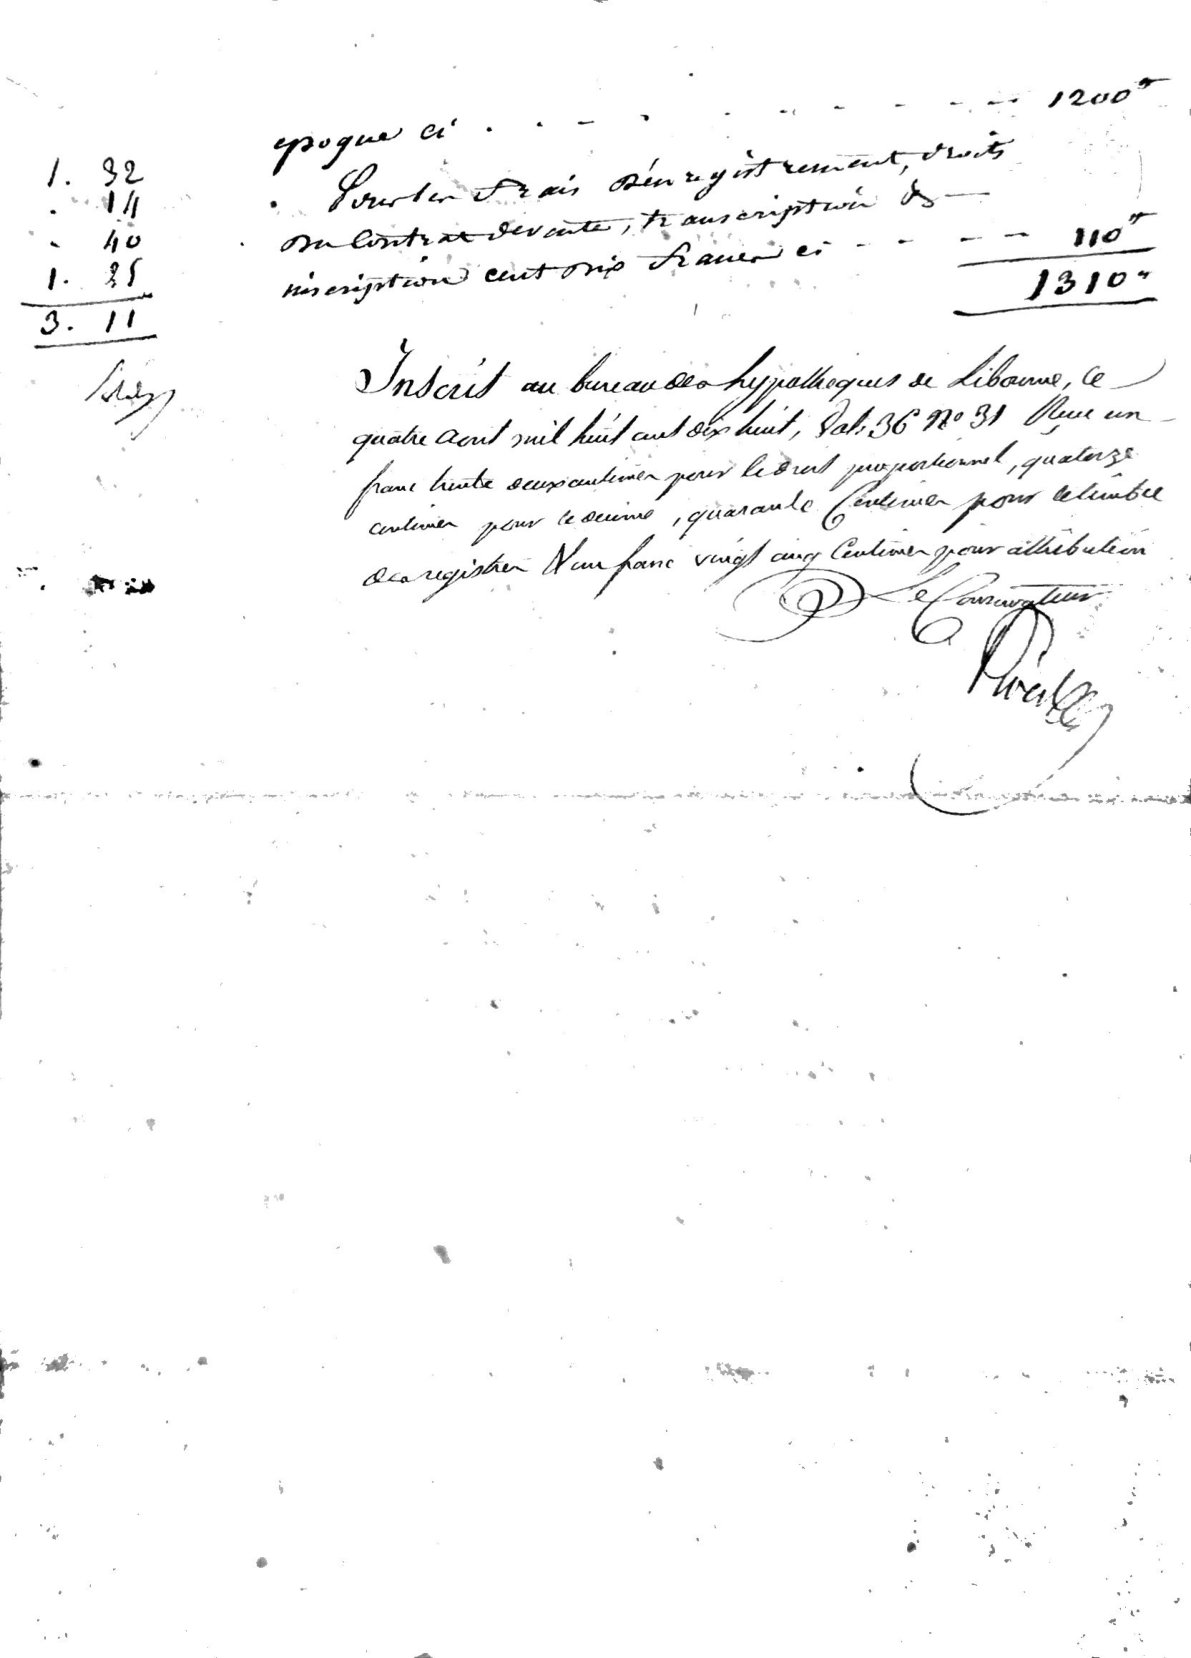 époque ci . . - - - - - - - - 1200"
Pour les frais d'enregistrement, droits
du Contrat de vente, transcription &
inscription cent dix francs ci - - - - 110"
1310"
1. 32
. 14
- 40
1. 25
3. 11
Inscrit au bureau des hypotheques de Libourne, ce
quatre aout mil huit cent dix huit, Vol. 36 N° 31 Reçu un
franc trente deux centimes pour le droit proportionnel, quatorze
centimes pour le decime, quarante Centimes pour le timbre
des registres & un franc vingt cinq Centimes pour attribution
Le Conservateur